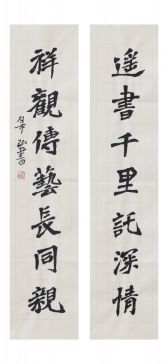 遥書千里託深情
祥觀傳藝長同親